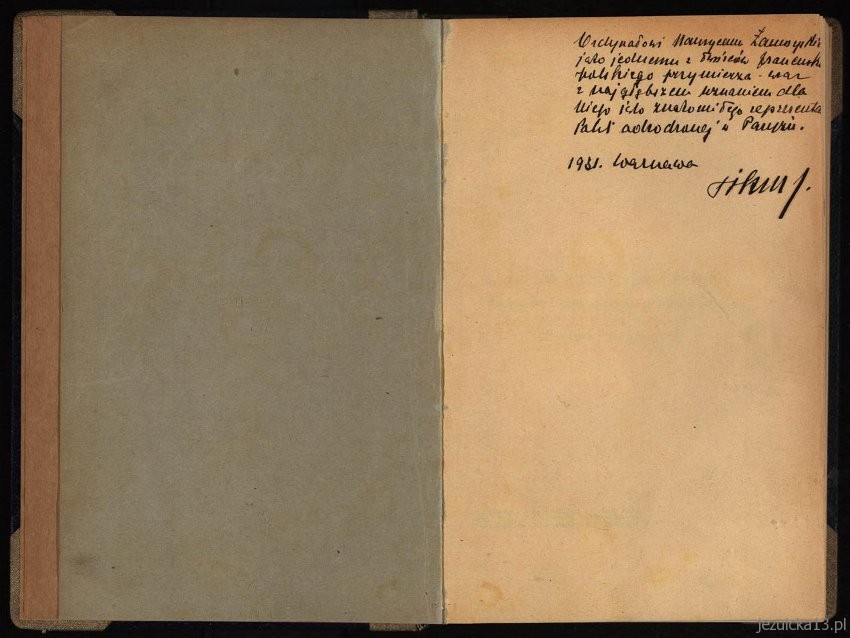 Ordynatowi Maurycemu Zamoyskie
jako jednemu z twórców francusko
polskiego przymierza - wraz
z najgłębszem uznaniem dla
Niego jako znakomitego reprezenta
Polski odrodzonej w Paryżu.
1931. Warszawa
jezuicka13.pl